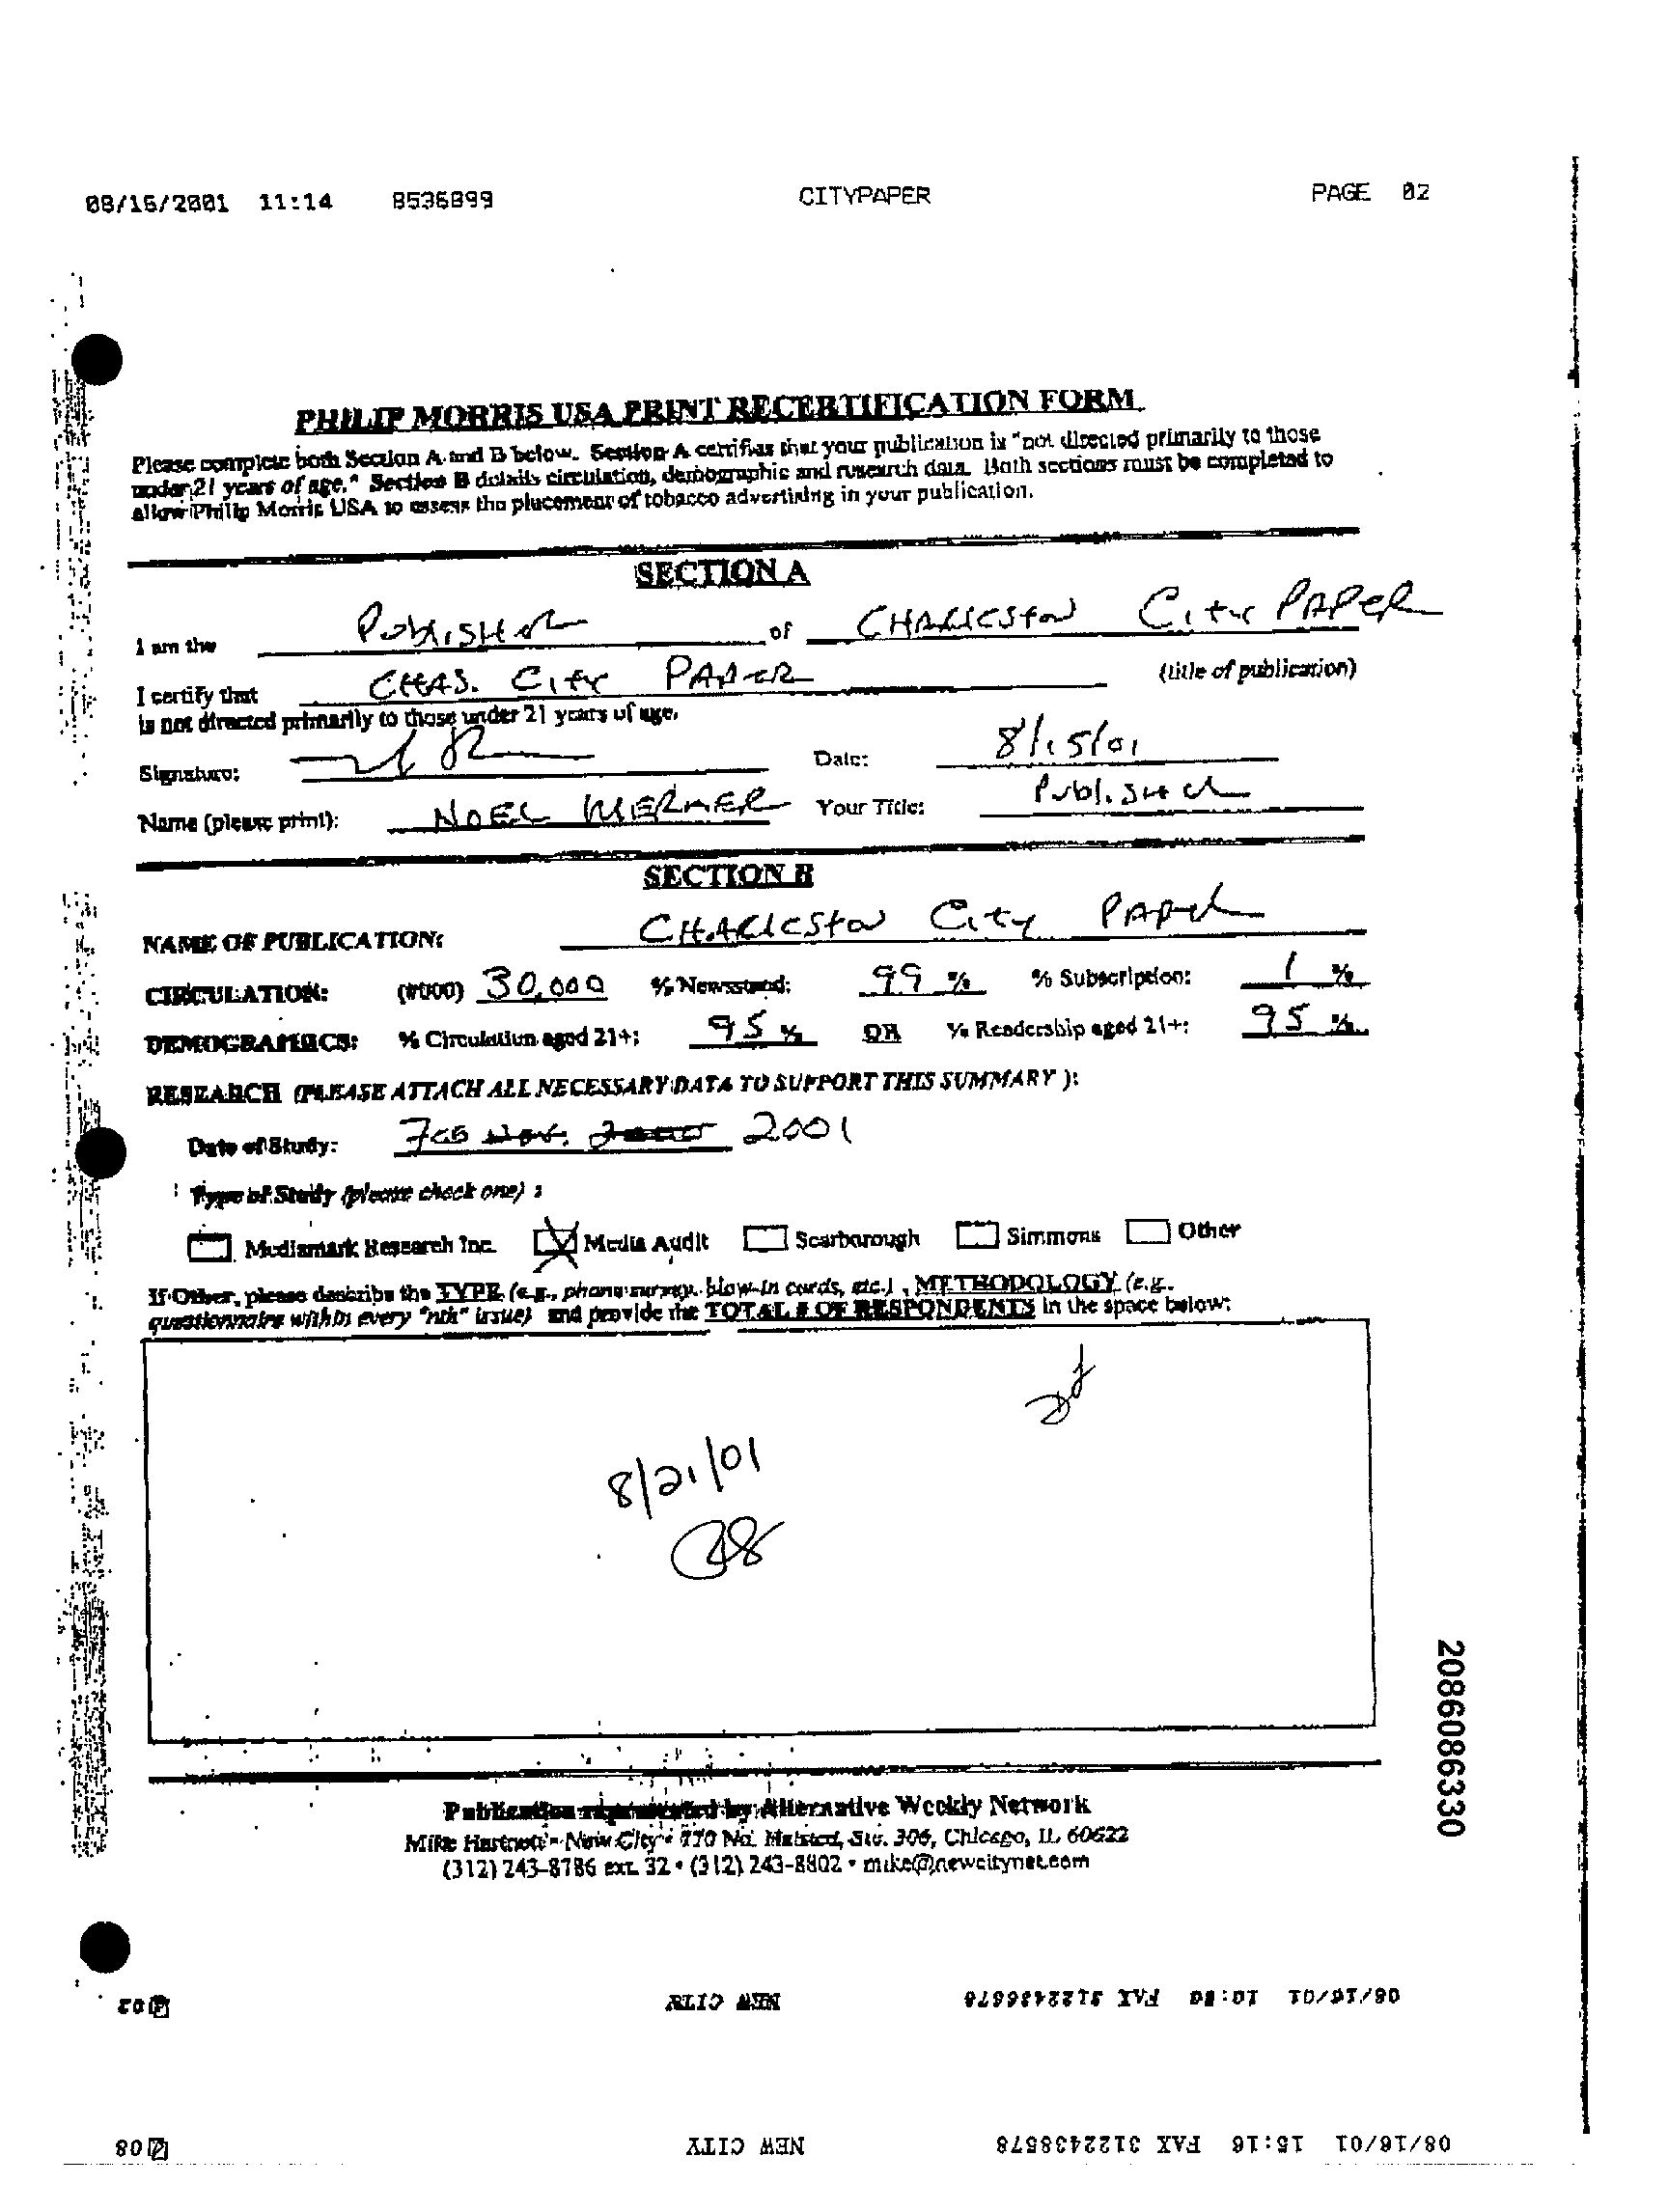 08/16/2001 11:14 8536899 CITYPAPER PAGE 02
PHILIP MORRIS USA PRINT RECERTIFICATION FORM
Please complete both Section A and B below. Section A certifies that your publication is "not directed primarily to those
under 21 years of age." Section B details circulation, demographic and research data. Both sections must be completed to
allow Philip Morris USA to assess the placement of tobacco advertising in your publication.
SECTION A
I am the Publisher of CHARLESTON City PAPER
(title of publication)
I certify that CHAS. City PAPER
is not directed primarily to those under 21 years of age.
Signature: Date: 8/15/01
Name (please print): NOEL MERMER Your Title: Publisher
SECTION B
NAME OF PUBLICATION: CHARLESTON City PAPER
CIRCULATION: (#000) 30,000 % Newsstand: 99 % % Subscription: 1 %
DEMOGRAPHICS: % Circulation aged 21+: 95 % OR % Readership aged 21+: 95 %
RESEARCH (PLEASE ATTACH ALL NECESSARY DATA TO SUPPORT THIS SUMMARY ):
Date of Study: Feb 2001
Type of Study (please check one) :
Mediamark Research Inc. Media Audit Scarborough Simmons Other
If Other, please describe the TYPE (e.g., phone survey, blow-in cards, etc.) , METHODOLOGY (e.g.
questionnaire within every "nth" issue) and provide the TOTAL # OF RESPONDENTS in the space below:
8/21/01
2086086330
Publication represented by Alternative Weekly Network
Mike Hartnett • New City • 770 No. Halsted, Ste. 306, Chicago, IL 60622
(312) 243-8786 ext. 32 • (312) 243-8802 • mike@newcitynet.com
08/16/01 10:50 FAX 3122438678 NEW CITY 02
08/16/01 15:16 FAX 3122438578 NEW CITY 08